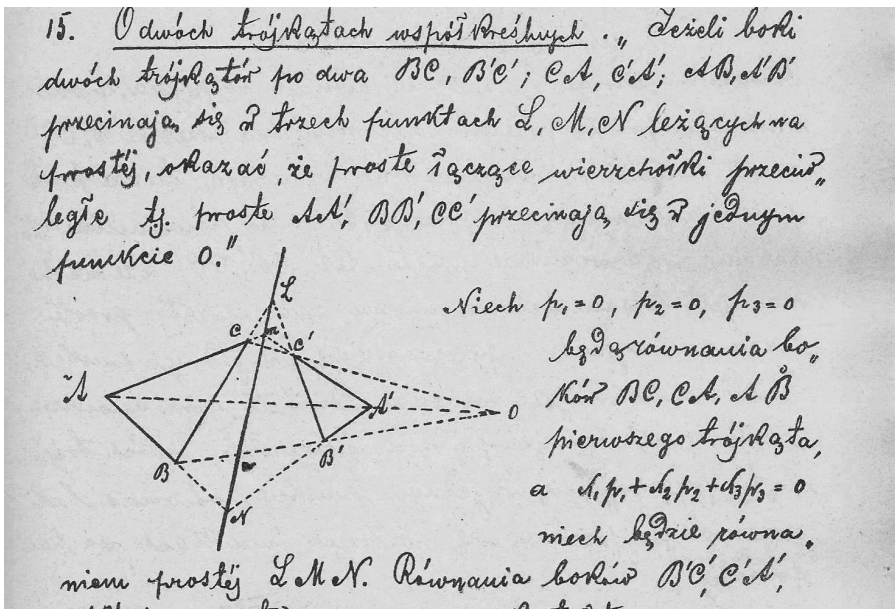 15. O dwóch trójkątach współkreślnych. „Jeżeli boki
dwóch trójkątów po dwa BC, B'C'; CA, C'A'; AB, A'B'
przecinają się w trzech punktach L, M, N leżących na
prostéj, okazać, że proste łączące wierzchołki przeciw„
ległe tj. proste AA', BB', CC' przecinają się w jednym
punkcie O."
L
C
m
C'
A
A'
O
B
B'
N
Niech p₁=0, p₂=0, p₃=0
będą równania bo„
ków BC, CA, AB
pierwszego trójkąta,
a N₁p₁+N₂p₂+N₃p₃=0
niech będzie równa„
niem prostéj LMN. Równania boków B'C', C'A',